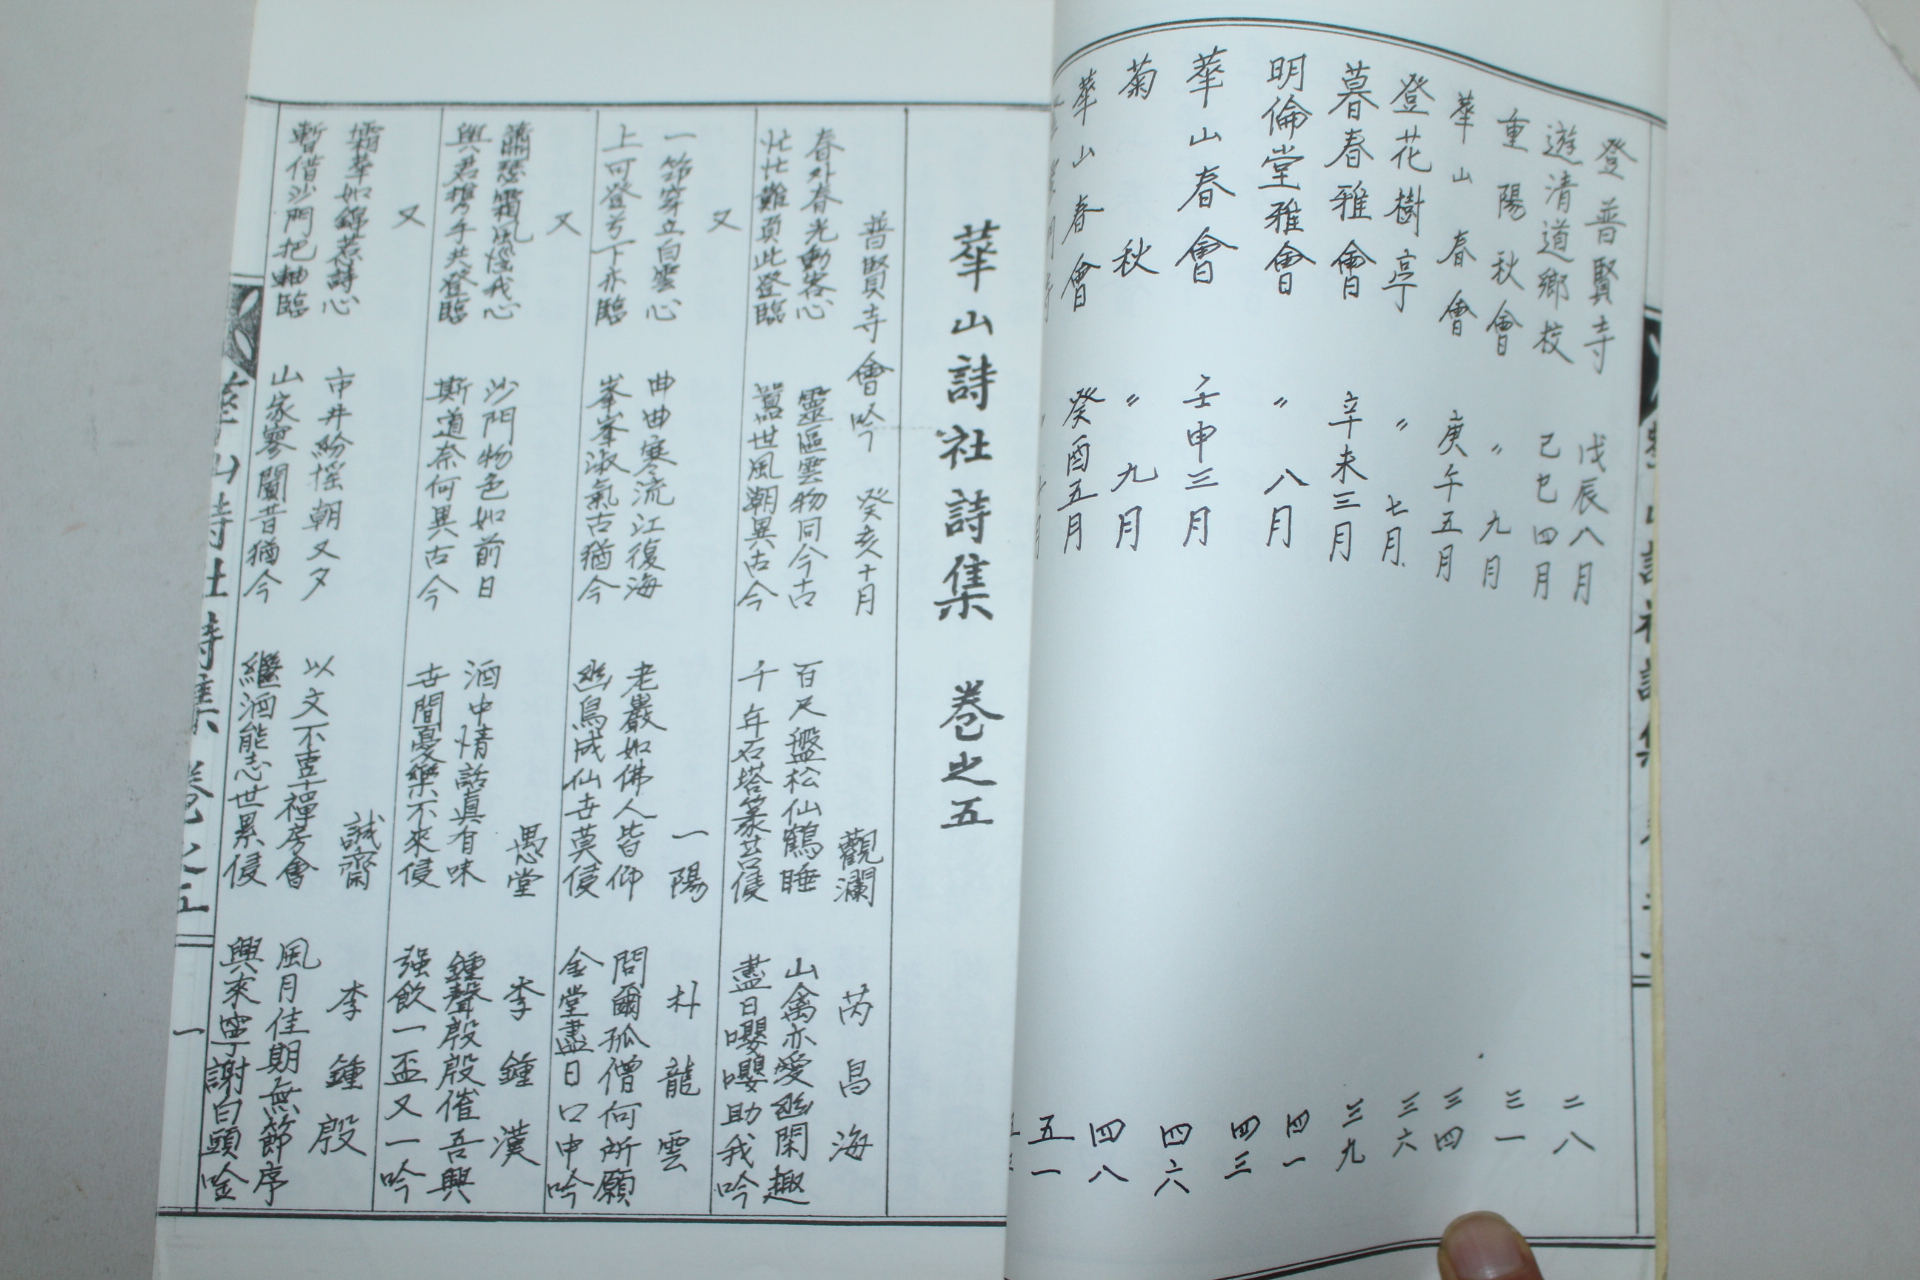 登普賢寺 戊辰八月 二八
遊清道鄉校 己巳四月
重陽秋會 〃 九月 三一
華山春會 庚午五月 三四
登花樹亭 〃 七月 三六
暮春雅會 辛未三月 三九
明倫堂雅會 〃 八月 四一
華山春會 壬申三月 四三
菊秋 〃 九月 四六
華山春會 癸酉五月 四八
五一
華山詩社詩集 卷之五
普賢寺會吟 癸亥十月 觀瀾 芮昌海
春外春光動客心 靈區雲物同今古 百尺盤松仙鶴睡 山禽亦愛幽閑趣
忙忙難負此登臨 囂世風潮異古今 千年石塔篆苔侵 盡日嚶嚶助我吟
又 一陽 朴龍雲
一笻穿立白雲心 曲曲寒流江復海 老巖如佛人皆仰 問爾孤僧何所願
上可登兮下亦臨 峯峯淑氣古猶今 幽鳥成仙世莫侵 金堂盡日口申吟
又 愚堂 李鍾漢
蕭瑟霜風惱我心 沙門物色如前日 酒中情話眞有味 鍾聲殷殷催吾興
與君携手共登臨 斯道奈何異古今 世間憂樂不來侵 强飲一盃又一吟
又 誠齋 李鍾殷
霜華如錦惹詩心 市井紛搖朝又夕 以文不害禪房會 風月佳期無節序
暫借沙門把軸臨 山家寥闃昔猶今 繼酒能忘世累侵 興來寧謝白頭吟
華山詩社詩集 卷之五 一